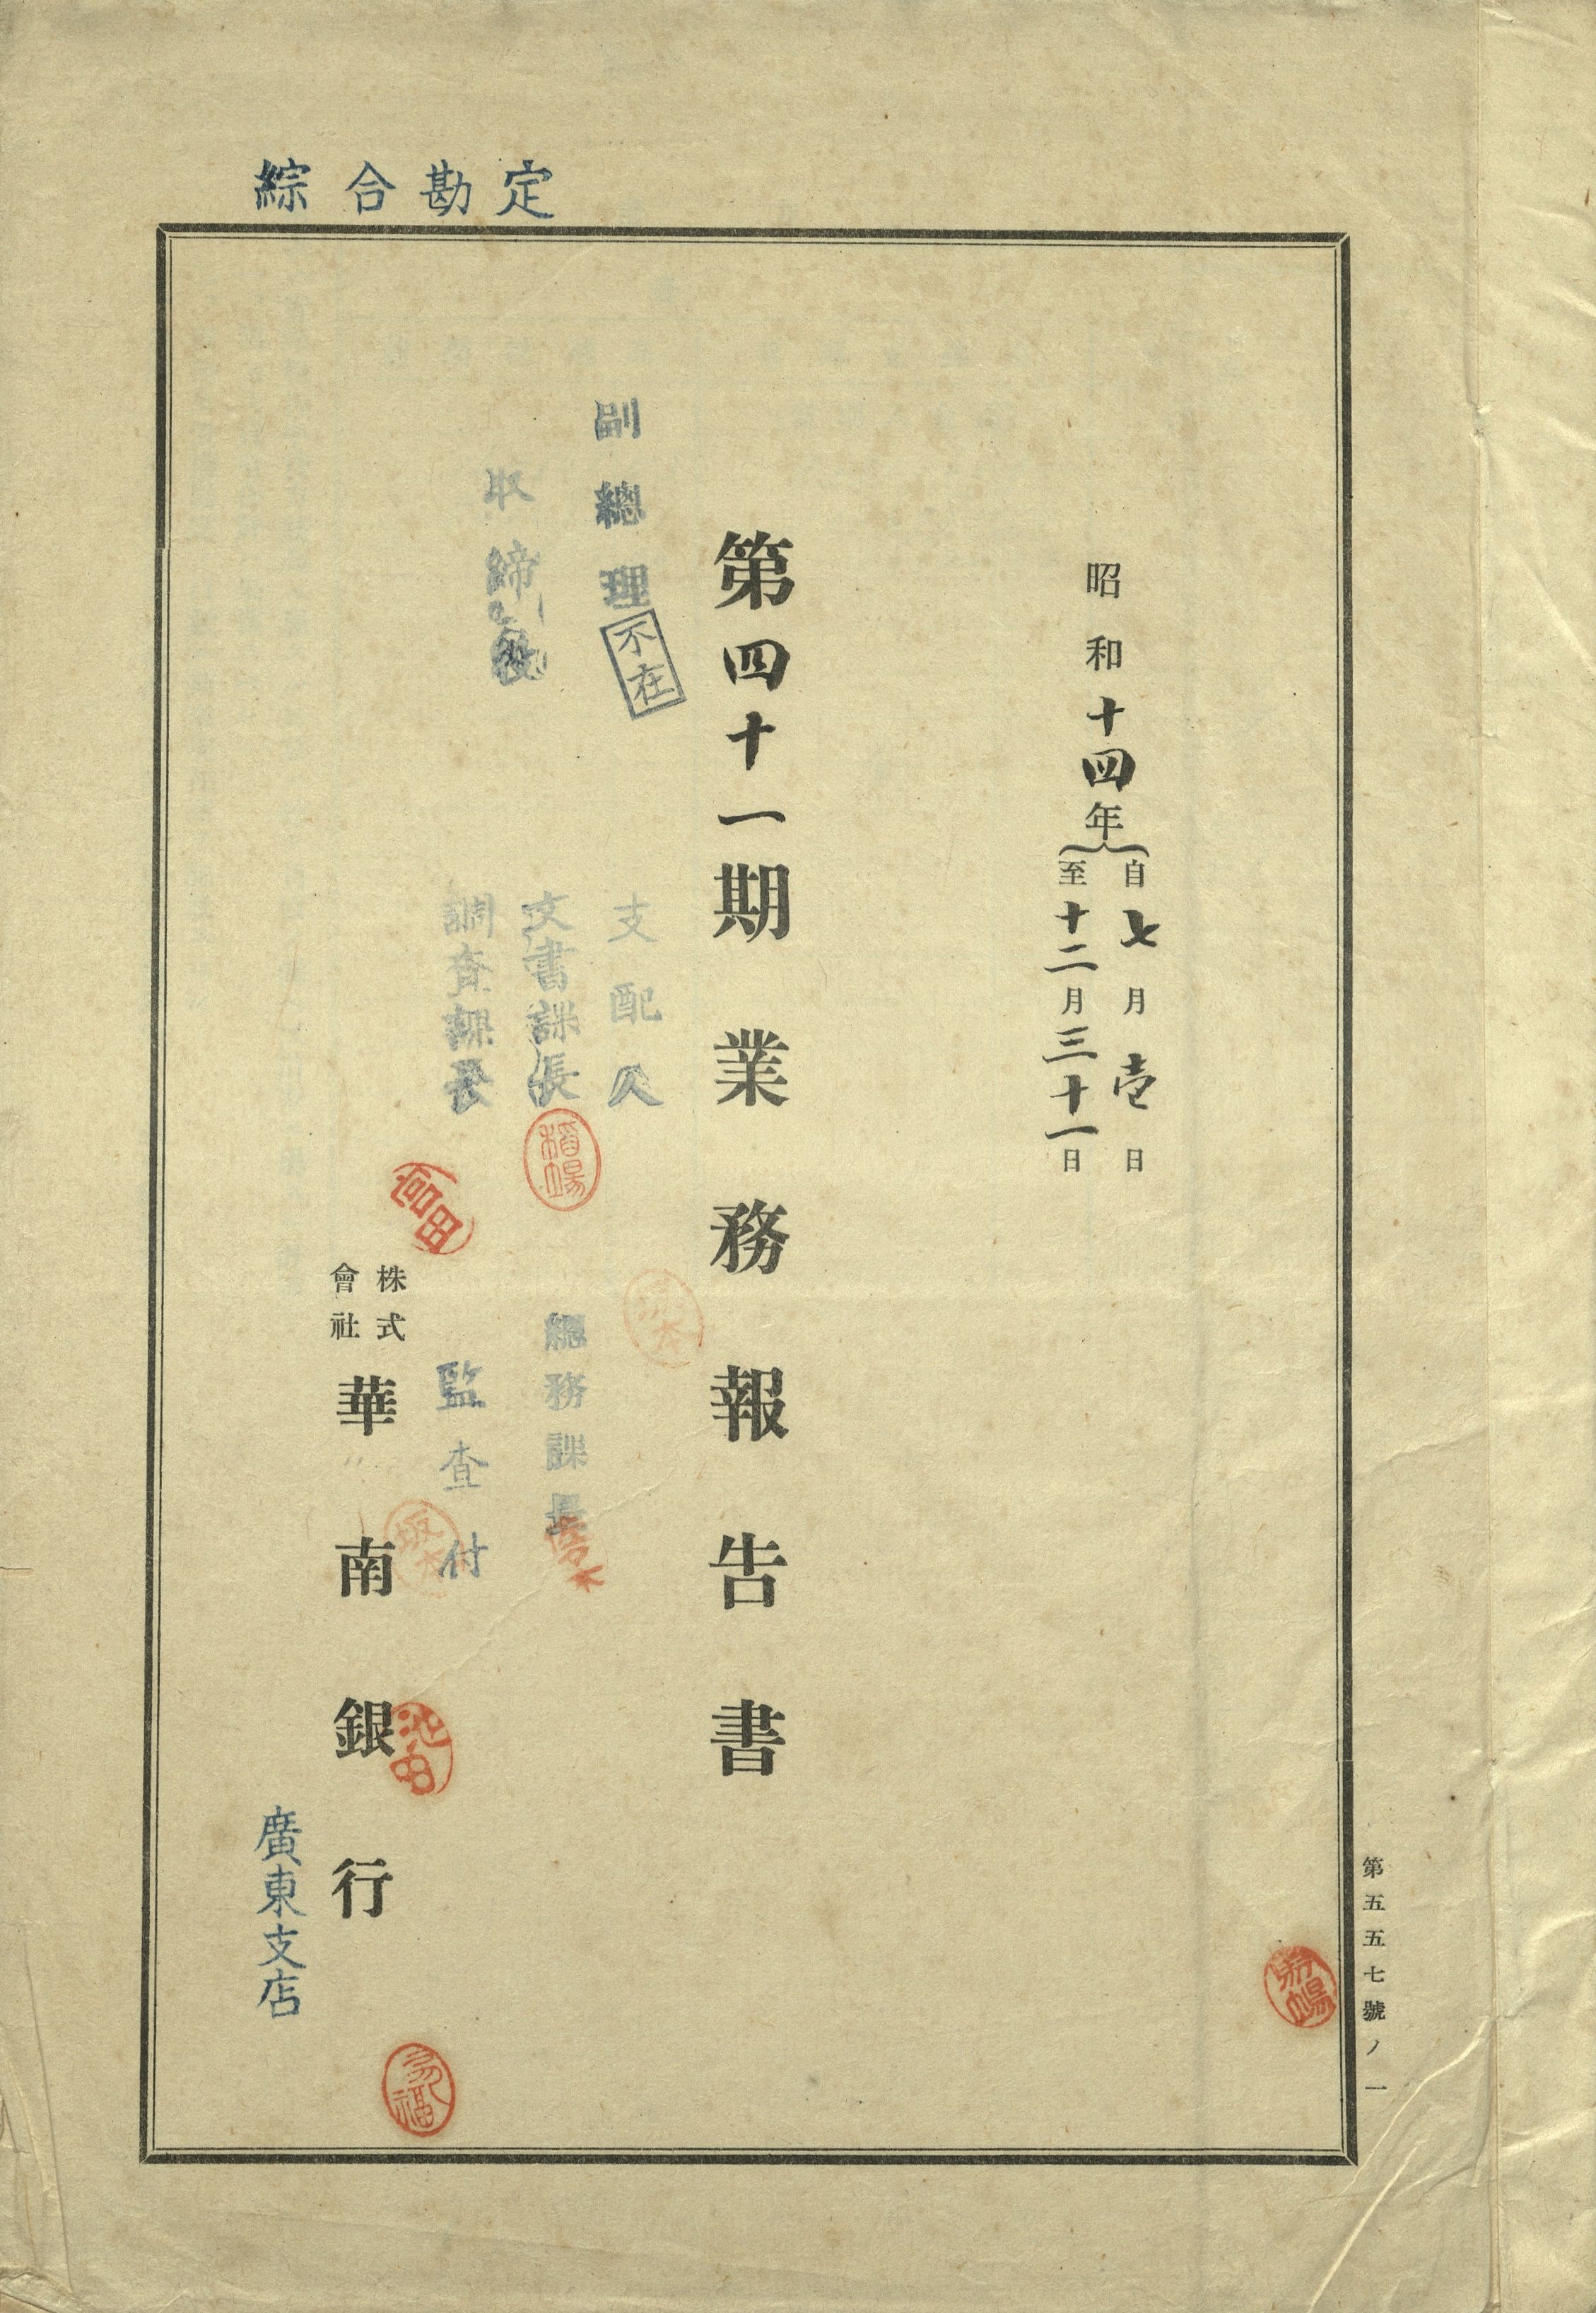 綜合勘定
昭和十四年
自七月壱日
至十二月三十一日
第四十一期業務報告書
副總理
不在
取締役
支配人
文書課長
調査課長
總務課長
監査付
株式
會社
華南銀行
廣東支店
第五五七號ノ一
富田
坂本